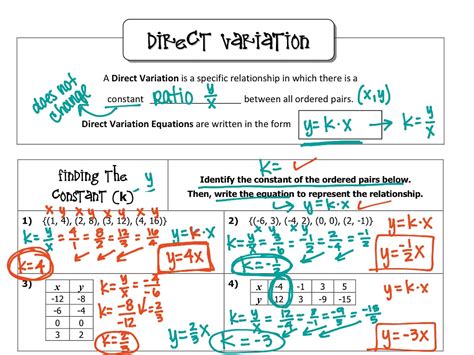 Direct Variation
A Direct Variation is a specific relationship in which there is a
does not change
constant ratio y/x between all ordered pairs. (x,y)
Direct Variation Equations are written in the form y = k·x → k = y/x
Finding the
Constant (k) - y/x
k =
Identify the constant of the ordered pairs below.
Then, write the equation to represent the relationship.
y = k·x
x y x y x y x y
1) {(1, 4), (2, 8), (3, 12), (4, 16)} y = k·x
k = y/x = 4/1 = 8/2 = 12/3 = 16/4
k = 4
y = 4x
2) {(-6, 3), (-4, 2), (0, 0), (2, -1)} y = k·x
k = y/x = 3/-6 = 2/-4 = -1/2
k = -1/2
y = -1/2x
3)
x y
-12 -8
-6 -4
0 0
3 2
k = y/x = -4/-6
k = -8/-12 = 2/3
k = 2/3
y = 2/3x
4)
x -4 -1 3 5
y 12 3 -9 -15
y = k·x
k = y/x = 12/-4 = 3/-1 = -9/3 = -15/5
k = -3
y = -3x